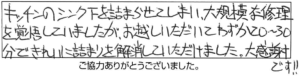 キッチンのシンク下を詰まらせてしまい、大規模な修理
を覚悟していましたが、お越しいただいてわずか20〜30
分できれいに詰まりを解消していただけました。大感謝
です!!
ご協力ありがとうございました。